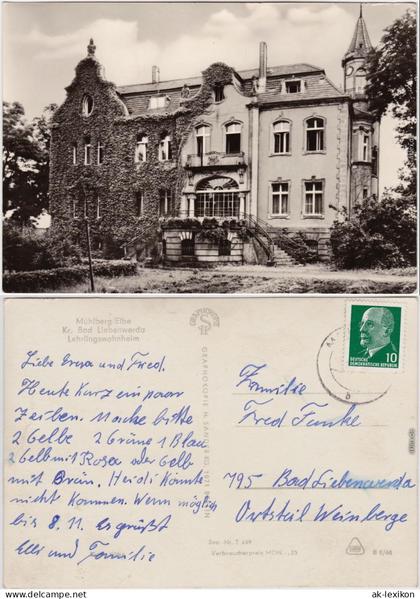 Mühlberg/Elbe
Kr. Bad Liebenwerda
Lehrlingswohnheim
Liebe Erna und Fred.
Heute kurz ein paar
Zeilen. Macke bitte
2 Gelbe 2 Grüne 1 Blau
2 Gelb mit Rosa oder Gelb
mit Braun. Heidi könnte
nicht kommen. Wenn möglich
bis 8. 11. Es grüßt
Elli und Familie
GRAPHOKOPIE H. SANDER KG.
BERLIN
DEUTSCHE
DEMOKRATISCHE REPUBLIK
10
Familie
Fred Funke
795 Bad Liebenwerda
Ortsteil Weinberge
Best.-Nr. T 449
Verbraucherpreis MDN -,25
B 6/66
© ak-lexikon.com